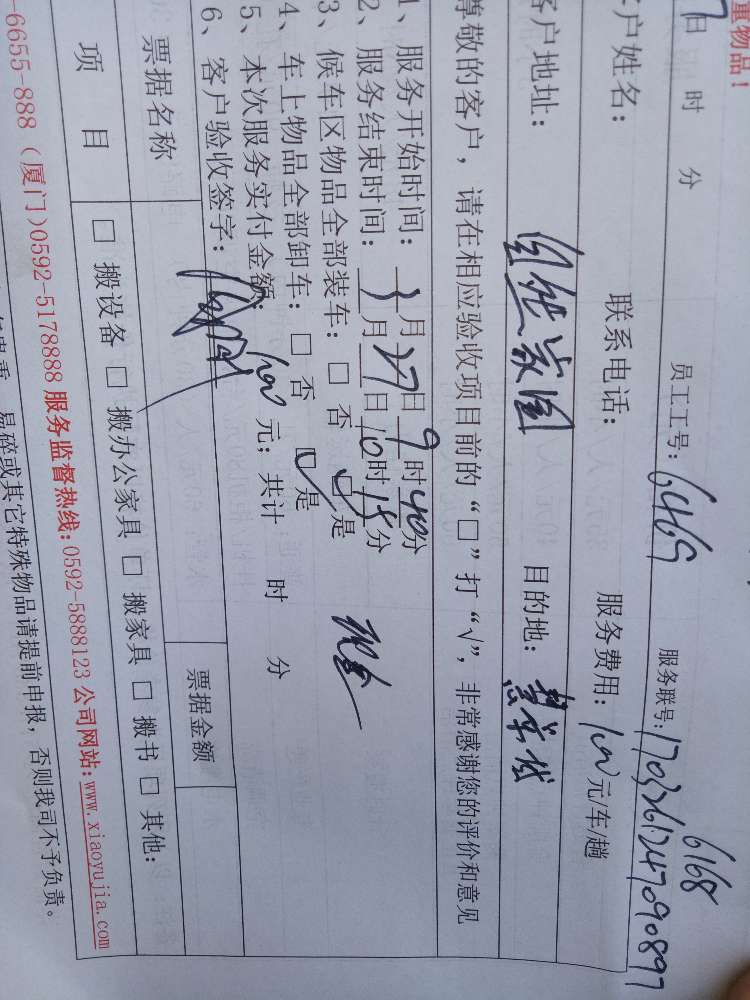 重物品！
日 时 分 员工工号：6469 服务联号：170326124709089
6168
客户姓名： 联系电话： 服务费用：100元/车/趟
客户地址：自然家园 目的地：
尊敬的客户，请在相应验收项目前的“□”打“√”，非常感谢您的评价和意见
1、服务开始时间： 月27日9时40分
2、服务结束时间： 月 日10时15分
3、候车区物品全部装车：□ 否 ☑是
4、车上物品全部卸车：□ 否 ☑是
5、本次服务实付金额：100元；共计 时 分
现金
6、客户验收签字：
票据名称 票据金额
项 目 □ 搬设备 □ 搬办公家具 □ 搬家具 □ 搬书 □ 其他：
-6655-888（厦门）0592-5178888 服务监督热线：0592-5888123 公司网站：www.xiaoyujia.com
贵重、易碎或其它特殊物品请提前申报，否则我司不予负责。